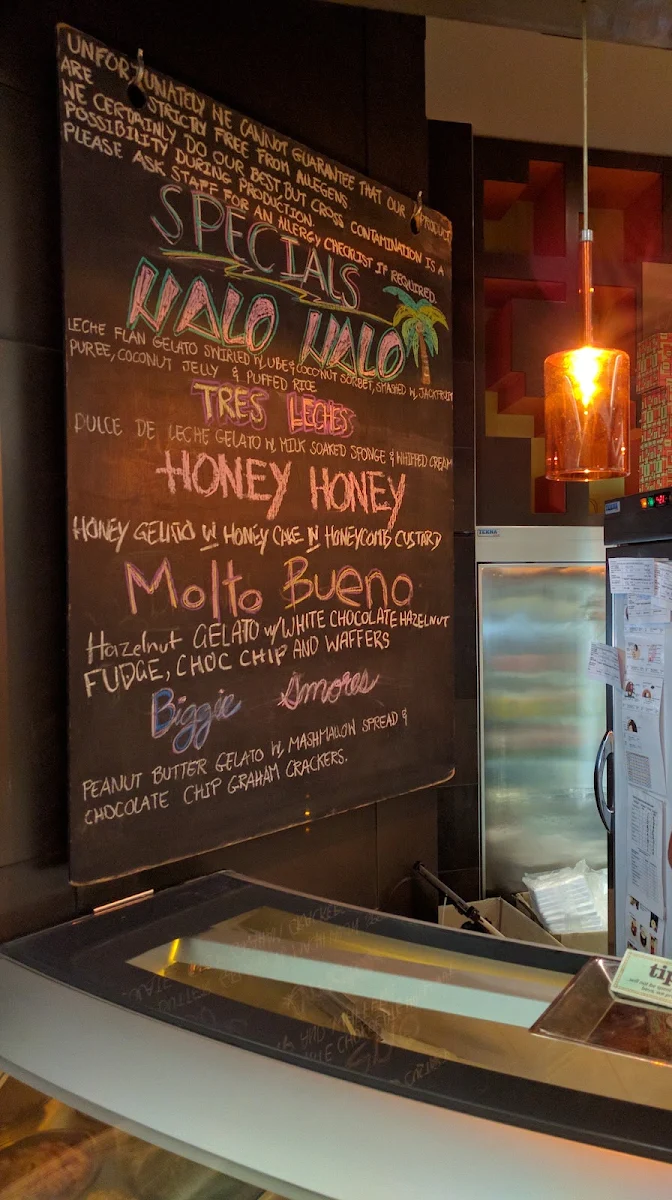 UNFORTUNATELY WE CANNOT GUARANTEE THAT OUR PRODUCT
ARE STRICTLY FREE FROM ALLEGENS
WE CERTAINLY DO OUR BEST, BUT CROSS CONTAMINATION IS A
POSSIBILITY DURING PRODUCTION.
PLEASE ASK STAFF FOR AN ALLERGY CHECKLIST IF REQUIRED.
SPECIALS
HALO HALO
LECHE FLAN GELATO SWIRLED W, UBE & COCONUT SORBET, SMASHED W, JACKFRUIT
PUREE, COCONUT JELLY & PUFFED RICE
TRES LECHES
DULCE DE LECHE GELATO W, MILK SOAKED SPONGE & WHIPPED CREAM
HONEY HONEY
HONEY GELATO W HONEY CAKE N HONEYCOMB CUSTARD
Molto Bueno
Hazelnut GELATO w/ WHITE CHOCOLATE HAZELNUT
FUDGE, CHOC CHIP AND WAFFERS
Biggie Smores
PEANUT BUTTER GELATO W, MASHMALLOW SPREAD &
CHOCOLATE CHIP GRAHAM CRACKERS.
TEKNA
tip